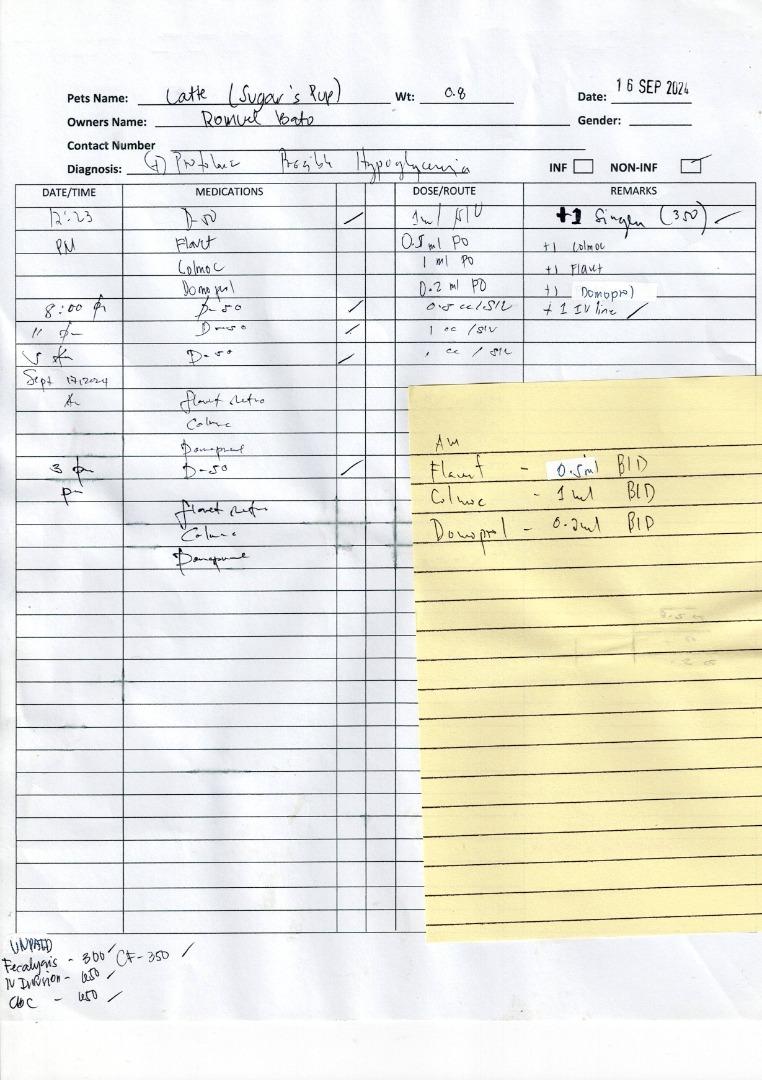 Pets Name: Latte (Sugar's Pup) Wt: 0.8 Date: 16 SEP 2024
Owners Name: Romuel Bato Gender:
Contact Number
Diagnosis: (+) Possible Hypoglycemia INF NON-INF
DATE/TIME MEDICATIONS DOSE/ROUTE REMARKS
12:23 D-50 1ml SIV +1 (350)
PM Flavet 0.5 ml PO +1 Colmoc
Colmoc 1 ml PO +1 Flavet
Domoprol 0.2 ml PO +1 Domoprol
8:00 pm D-50 0.5 cc/SIV + 1 IV line
11 pm D-50 1 cc /SIV
D-50 cc / SIV
Sept 17, 2024
Flavet
Colmoc
Domoprol
3 pm D-50
pm
Flavet
Colmoc
Domoprol
AM
Flavet - 0.5ml BID
Colmoc - 1ml BID
Domoprol - 0.2ml BID
UNPAID
Fecalysis - 300 CF - 350
IV Infusion - 650
CBC - 650